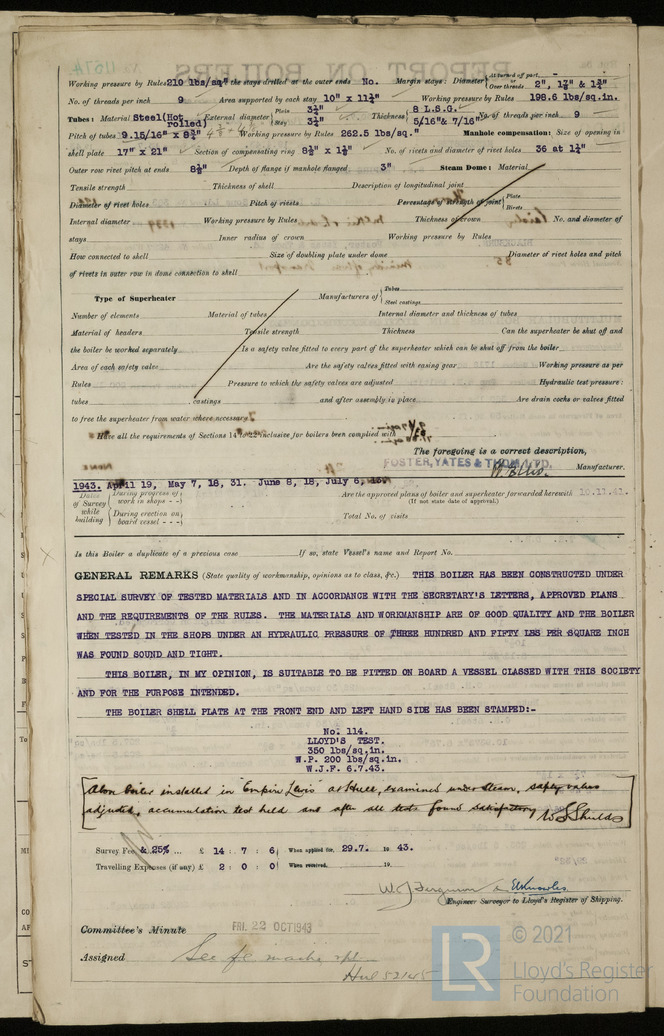 Working pressure by Rules 210 lbs/sq" the stays drilled at the outer ends No. Margin stays: Diameter At turned off part — Over threads 2", 1⅞" & 1¾"
No. of threads per inch 9 Area supported by each stay 10" x 11¼" Working pressure by Rules 198.6 lbs/sq.in.
Tubes: Material Steel(Hot rolled) External diameter Plain 3¼" Stay 3¼" Thickness 8 L.S.G. 5/16"& 7/16" No. of threads per inch 9
Pitch of tubes 9.15/16" x 8¾" Working pressure by Rules 262.5 lbs/sq." Manhole compensation: Size of opening in
shell plate 17" x 21" Section of compensating ring 8½" x 1⅛" No. of rivets and diameter of rivet holes 36 at 1¼"
Outer row rivet pitch at ends 8½" Depth of flange if manhole flanged 3" Steam Dome: Material
Tensile strength Thickness of shell Description of longitudinal joint
Diameter of rivet holes Pitch of rivets Percentage strength of joint Plate Rivets
Internal diameter Working pressure by Rules Thickness of crown No. and diameter of
stays Inner radius of crown Working pressure by Rules
How connected to shell Size of doubling plate under dome Diameter of rivet holes and pitch
of rivets in outer row in dome connection to shell
Type of Superheater Manufacturers of Tubes Steel castings
Number of elements Material of tubes Internal diameter and thickness of tubes
Material of headers Tensile strength Thickness Can the superheater be shut off and
the boiler be worked separately Is a safety valve fitted to every part of the superheater which can be shut off from the boiler
Area of each safety valve Are the safety valves fitted with easing gear Working pressure as per
Rules Pressure to which the safety valves are adjusted Hydraulic test pressure:
tubes castings and after assembly in place Are drain cocks or valves fitted
to free the superheater from water where necessary
Have all the requirements of Sections 14 to 22 inclusive for boilers been complied with
The foregoing is a correct description,
FOSTER, YATES & THOM LTD. W. Ellis. Manufacturer.
1943. April 19, May 7, 18, 31. June 8, 18, July 6,
Dates of Survey while building During progress of work in shops - - Are the approved plans of boiler and superheater forwarded herewith 10.12.42.
(If not state date of approval.)
During erection on board vessel - - - Total No. of visits
Is this Boiler a duplicate of a previous case If so, state Vessel's name and Report No.
GENERAL REMARKS (State quality of workmanship, opinions as to class, &c.) THIS BOILER HAS BEEN CONSTRUCTED UNDER
SPECIAL SURVEY OF TESTED MATERIALS AND IN ACCORDANCE WITH THE SECRETARY'S LETTERS, APPROVED PLANS
AND THE REQUIREMENTS OF THE RULES. THE MATERIALS AND WORKMANSHIP ARE OF GOOD QUALITY AND THE BOILER
WHEN TESTED IN THE SHOPS UNDER AN HYDRAULIC PRESSURE OF THREE HUNDRED AND FIFTY LBS PER SQUARE INCH
WAS FOUND SOUND AND TIGHT.
THIS BOILER, IN MY OPINION, IS SUITABLE TO BE FITTED ON BOARD A VESSEL CLASSED WITH THIS SOCIETY
AND FOR THE PURPOSE INTENDED.
THE BOILER SHELL PLATE AT THE FRONT END AND LEFT HAND SIDE HAS BEEN STAMPED:-
No. 114.
LLOYD'S TEST.
350 lbs/sq.in.
W.P. 200 lbs/sq.in.
W.J.F. 6.7.43.
Above boiler installed in "Empire Lewis" at Hull, examined under steam, safety valves
adjusted, accumulation test held and after all tests found satisfactory W S Shields
Survey Fee & 25% ... £ 14 : 7 : 6 When applied for, 29.7. 19 43.
Travelling Expenses (if any) £ 2 : 0 : 0 When received, 19
W. J. Ferguson
Engineer Surveyor to Lloyd's Register of Shipping.
Committee's Minute FRI. 22 OCT 1943
Assigned See
Hul 52145
© 2021
Lloyd's Register
Foundation